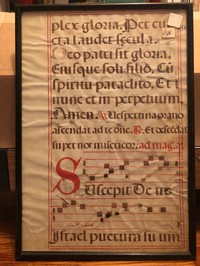 plex gloria, Per cun
cta laudet secula.
Deo patri sit gloria,
Eiusque soli filio, Cũ
spiritu paraclito, Et
nunc et in perpetuum,
Amen. ℣ Vespertina oratio
ascendat ad te dñe. ℟ Et descendat
super nos misericor. ad mag.
Suscepit Deus
Israel puerum suum